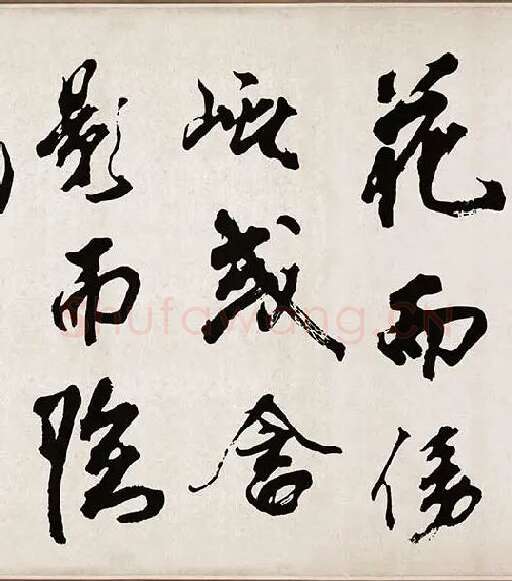 花而傍
或舍
影而隱
shufawang.CN